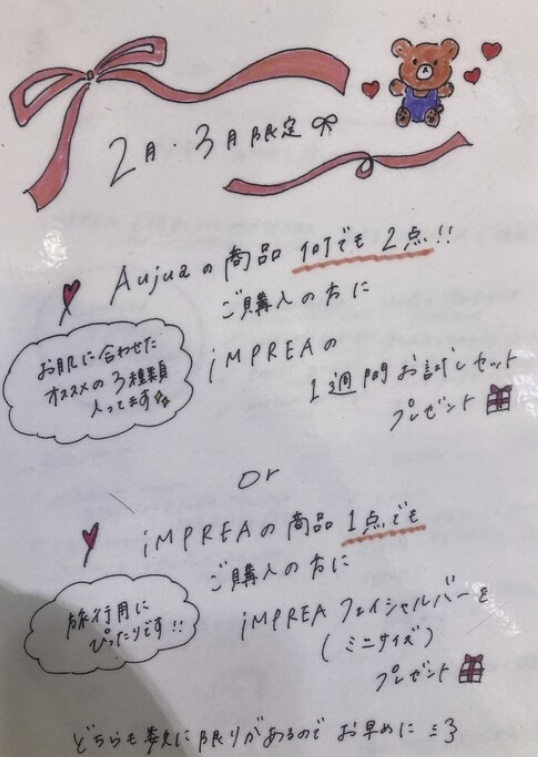 2月・3月限定
Aujuaの商品 何でも2点!!
ご購入の方に
iMPREAの
1週間お試しセット
プレゼント
お肌に合わせた
オススメの3種類
入ってます
or
iMPREAの商品1点でも
ご購入の方に
iMPREA フェイシャルバーを
(ミニサイズ)
プレゼント
旅行用に
ぴったりです!!
どちらも数に限りがあるので お早めに